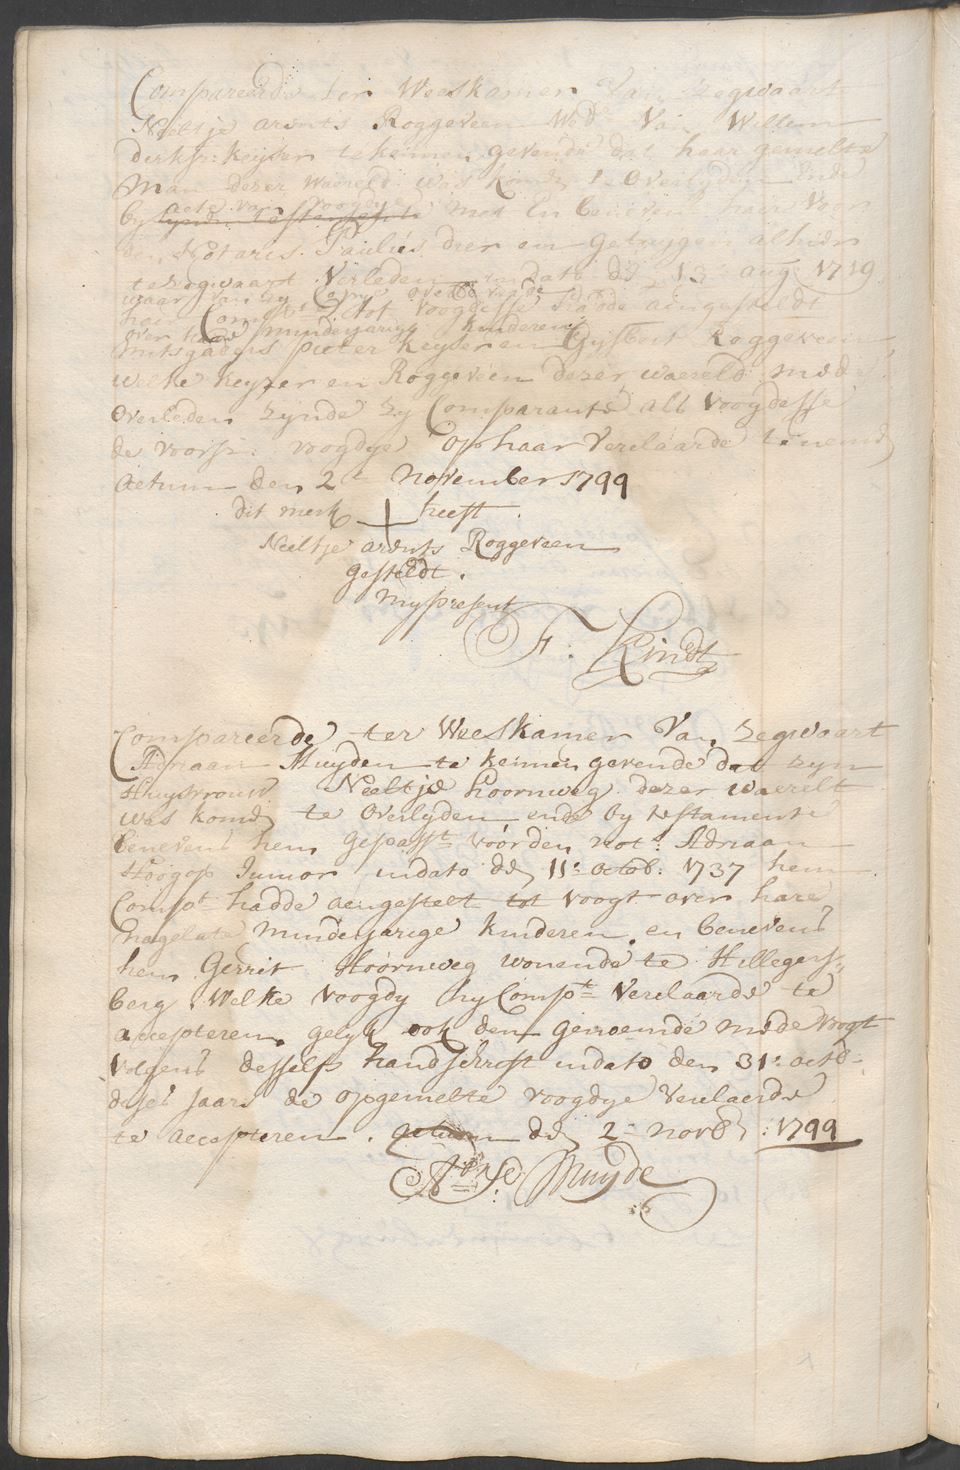 Compareerde ter Weeskamer Van Zegwaart
Neeltje arents Roggeveen Wedе Van Willem
derksz: keijser te kennen gevende dat haar gemelte
Man dezer waereld was komen te Overlyden Ende
by acte van voogdye met en beneven haar Voor
den Notaris Paulus dier en Getuygen alhier
te zegwaart Verleden in dato de 13 aug 1719
waar van zy Copy overleverde
haar Compte tot voogdesse hadde aengesteldt
over hare minderjarige kinderen
mitsgaders pieter keyser en Gysbert Roggeveen
welke keyzer en Roggeveen dezer waereld mede
Overleden zynde zy Comparante als Voogdesse
de voorsz: voogdye op haar Verclaarde te nemen
Actum den 2e november 1799
dit merk + heeft
Neeltje arents Roggeveen
gesteldt.
my present
F. Kindt
Compareerde ter Weeskamer Van Zegwaart
Adriaan Muyden te kennen gevende dat zyn
Huysvrouw Neeltje hoornweg dezer waerelt
was komen te Overlyden ende by testamente
benevens hem gepasst voor den not: Adriaan
Hoogop Junior indato den 11e octob: 1737 hem
Compt hadde aengestelt tot voogt over hare
nagelate minderjarige kinderen en benevens
hem Gerrit Hoornweg wonende te Hillegers-
berg Welke Voogdy hy Compt Verclaarde te
accepteren gelyk ook den genoemde mede Voogt
volgens desselfs handschrift indato den 31e octob
deses jaars de opgemelte voogdye Verclaerde
te accepteren. actum den 2e novemb 1799
Ad Muyde